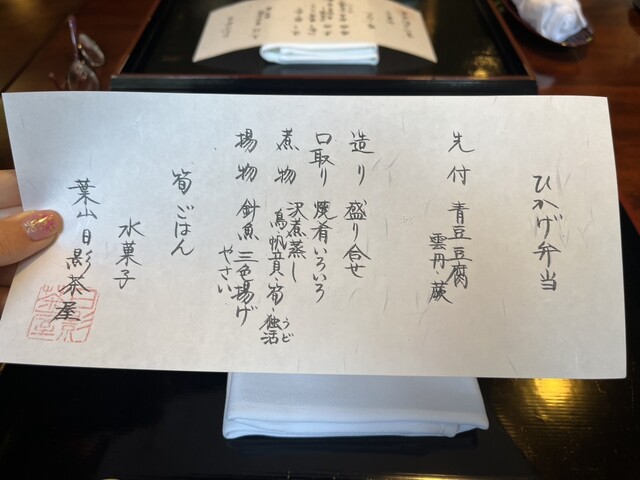 ひかげ弁当
先付 青豆豆腐
雲丹・蕨
造り 盛り合せ
口取り 焼肴いろいろ
煮物 沢煮蒸し
鳥帆立貝・筍・独活
うど
揚物 針魚三色揚げ
やさい
筍ごはん
水菓子
葉山日影茶屋
日影茶屋